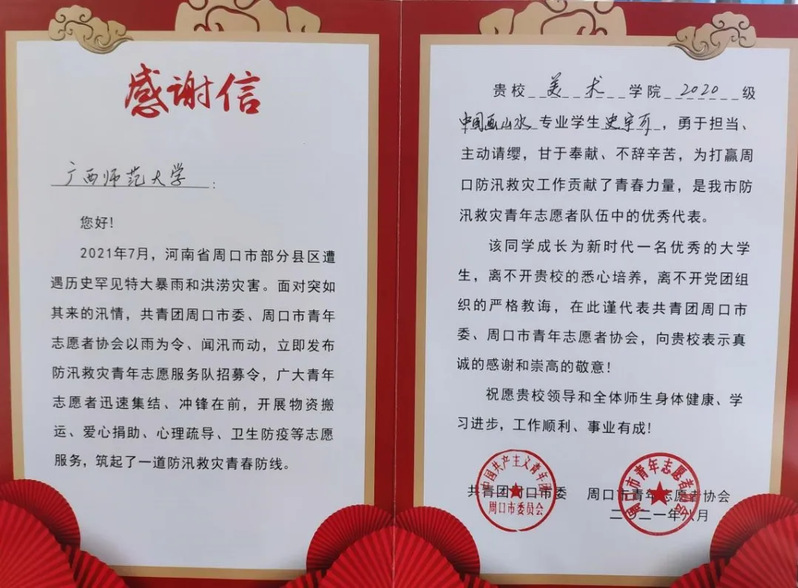 感谢信
广西师范大学：
您好！
2021年7月，河南省周口市部分县区遭
遇历史罕见特大暴雨和洪涝灾害。面对突如
其来的汛情，共青团周口市委、周口市青年
志愿者协会以雨为令、闻汛而动，立即发布
防汛救灾青年志愿服务队招募令，广大青年
志愿者迅速集结、冲锋在前，开展物资搬
运、爱心捐助、心理疏导、卫生防疫等志愿
服务，筑起了一道防汛救灾青春防线。
贵校美术学院2020级
中国画山水专业学生史宇可，勇于担当、
主动请缨，甘于奉献、不辞辛苦，为打赢周
口防汛救灾工作贡献了青春力量，是我市防
汛救灾青年志愿者队伍中的优秀代表。
该同学成长为新时代一名优秀的大学
生，离不开贵校的悉心培养，离不开党团组
织的严格教诲，在此谨代表共青团周口市
委、周口市青年志愿者协会，向贵校表示真
诚的感谢和崇高的敬意！
祝愿贵校领导和全体师生身体健康、学
习进步，工作顺利、事业有成！
中国共产主义青年团
周口市委员会
周口市青年志愿者协会
共青团周口市委 周口市青年志愿者协会
二〇二一年八月